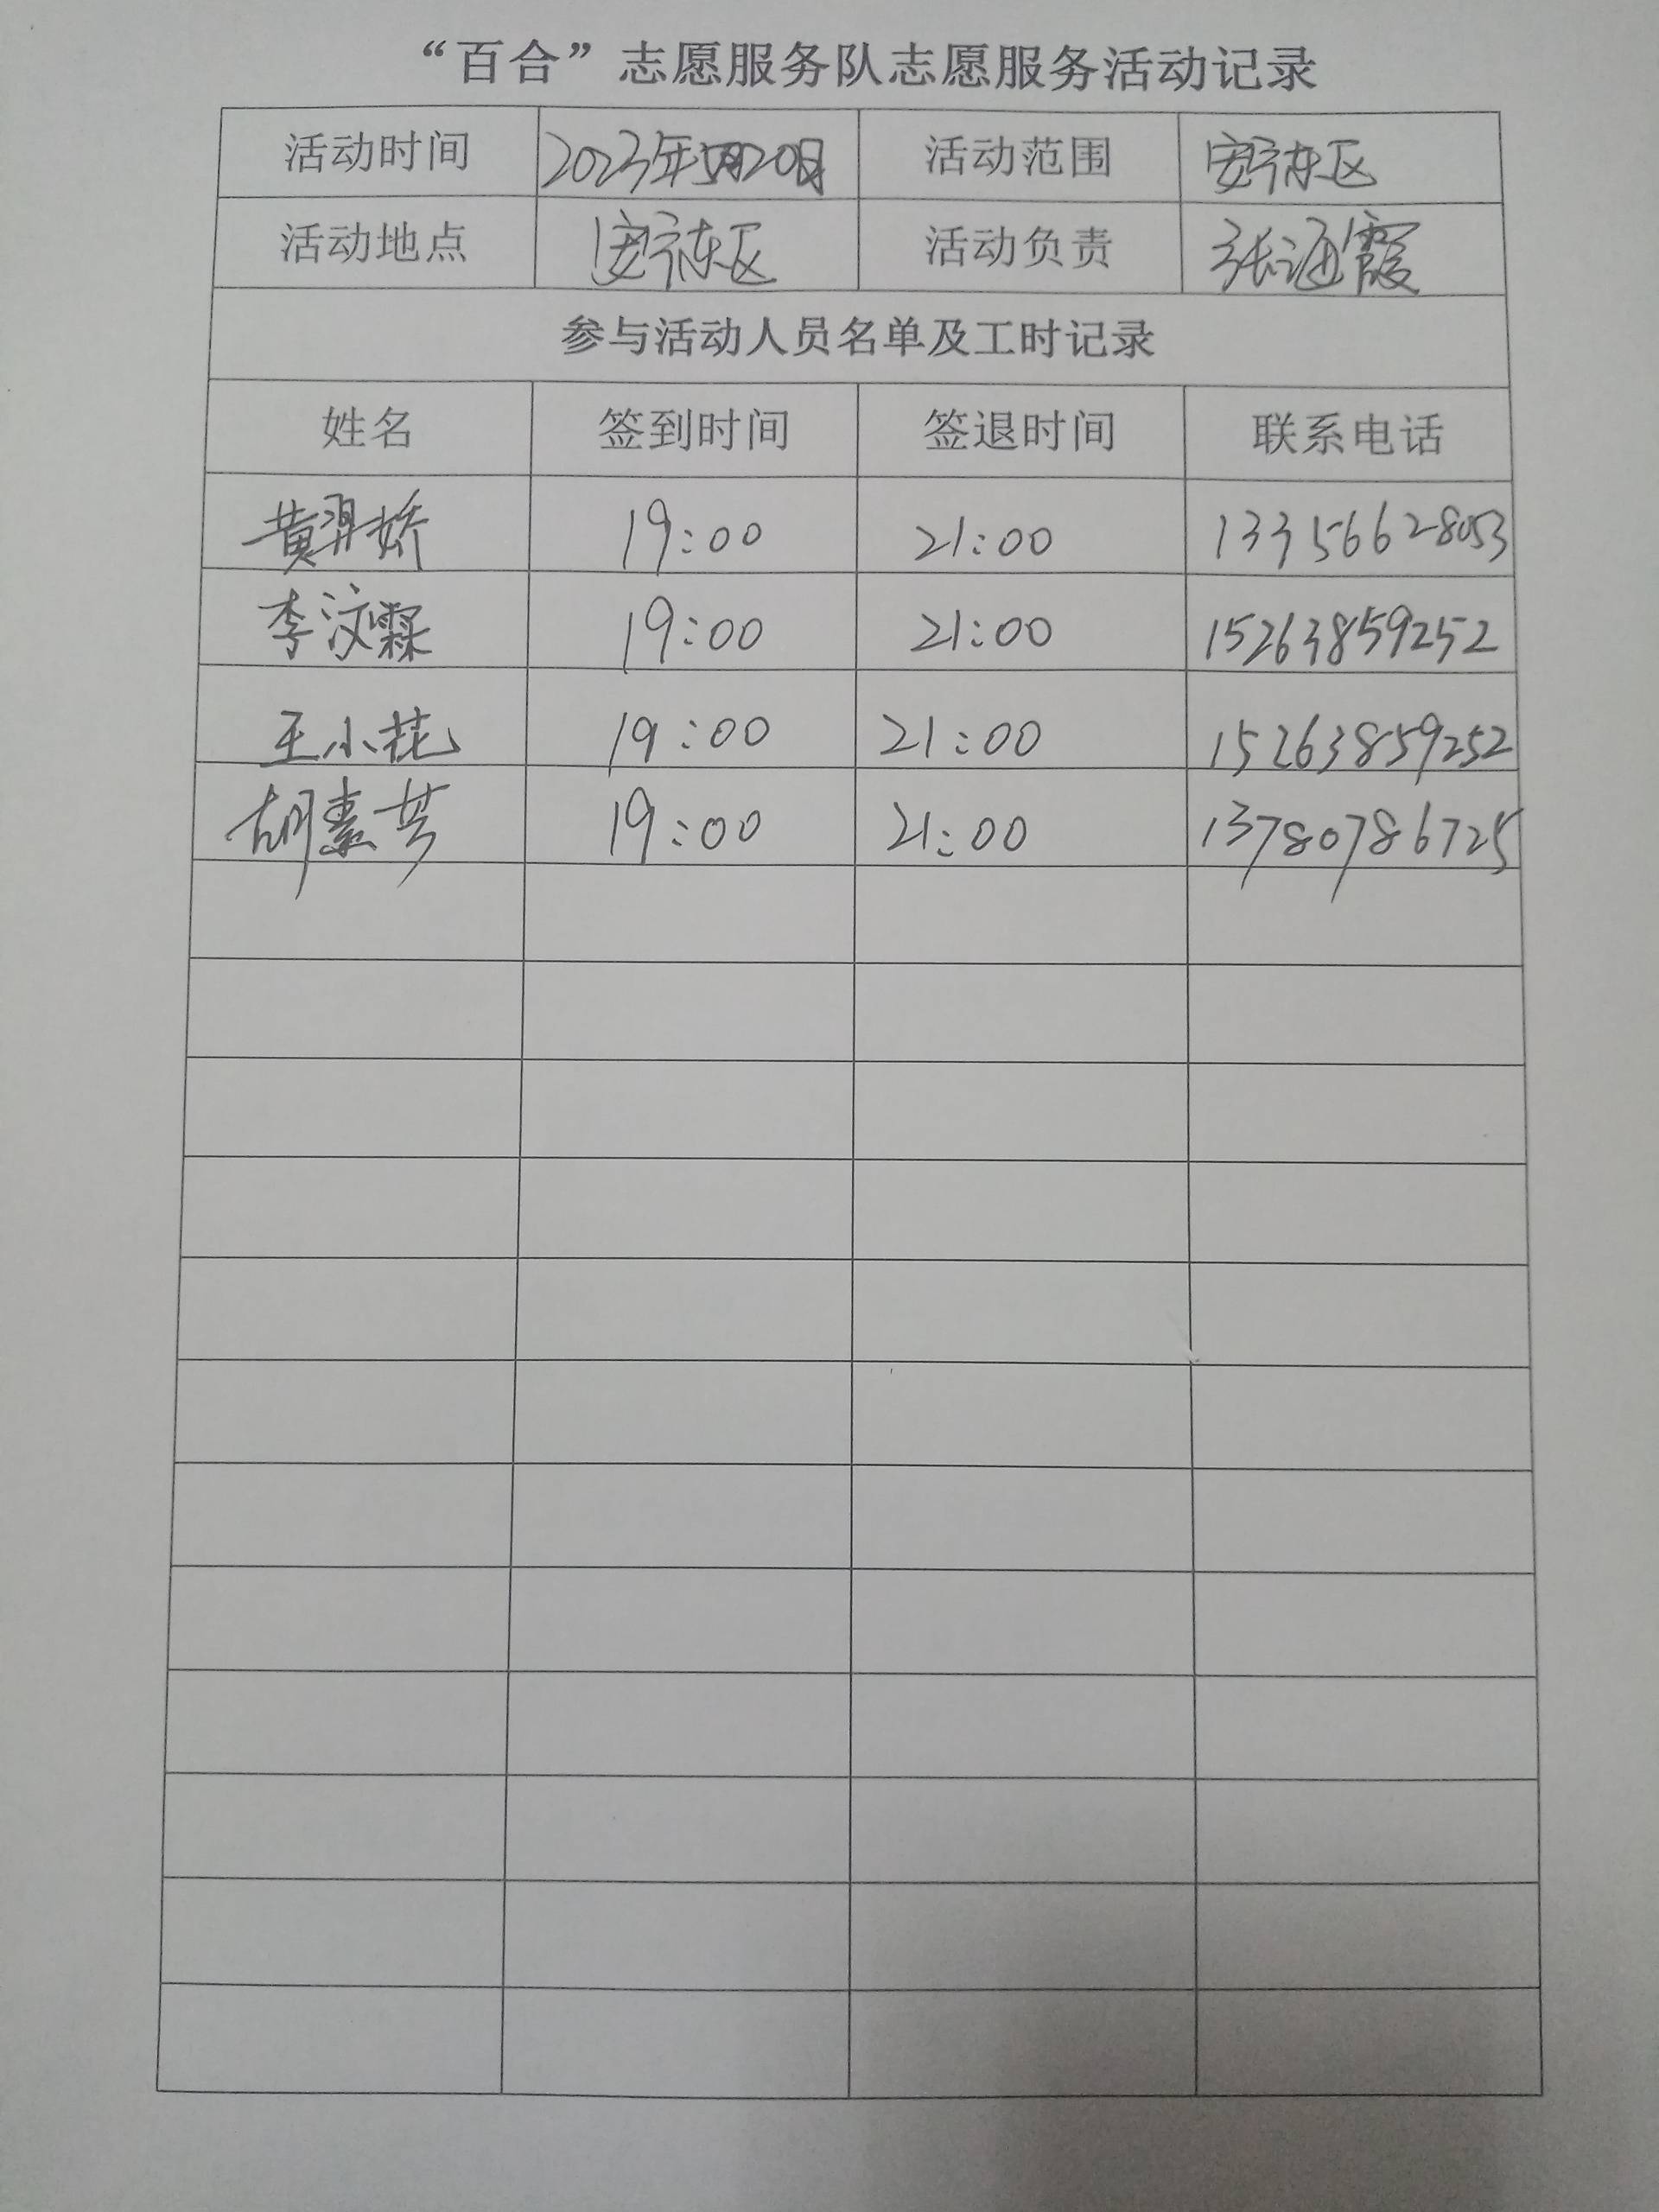 “百合”志愿服务队志愿服务活动记录
活动时间 2023年5月20日 活动范围 安宁东区
活动地点 安宁东区 活动负责 张海霞
参与活动人员名单及工时记录
姓名 签到时间 签退时间 联系电话
黄羿娇 19:00 21:00 13356628053
李汶霖 19:00 21:00 15263859252
王小花 19:00 21:00 15263859252
胡素芳 19:00 21:00 13780786725